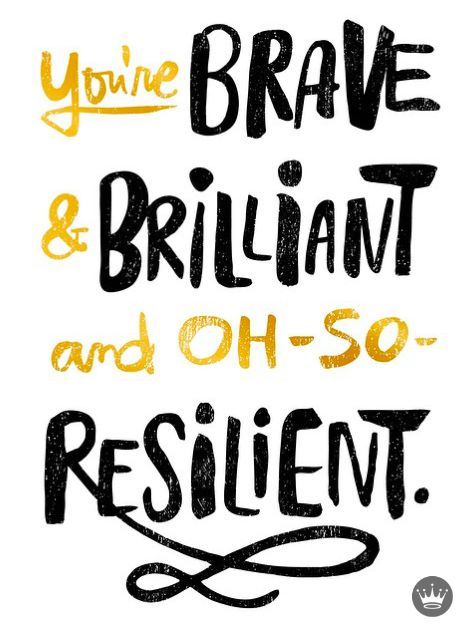 You're BRAVE
& BRiLLiANT
and OH-SO-
RESiLiENT.